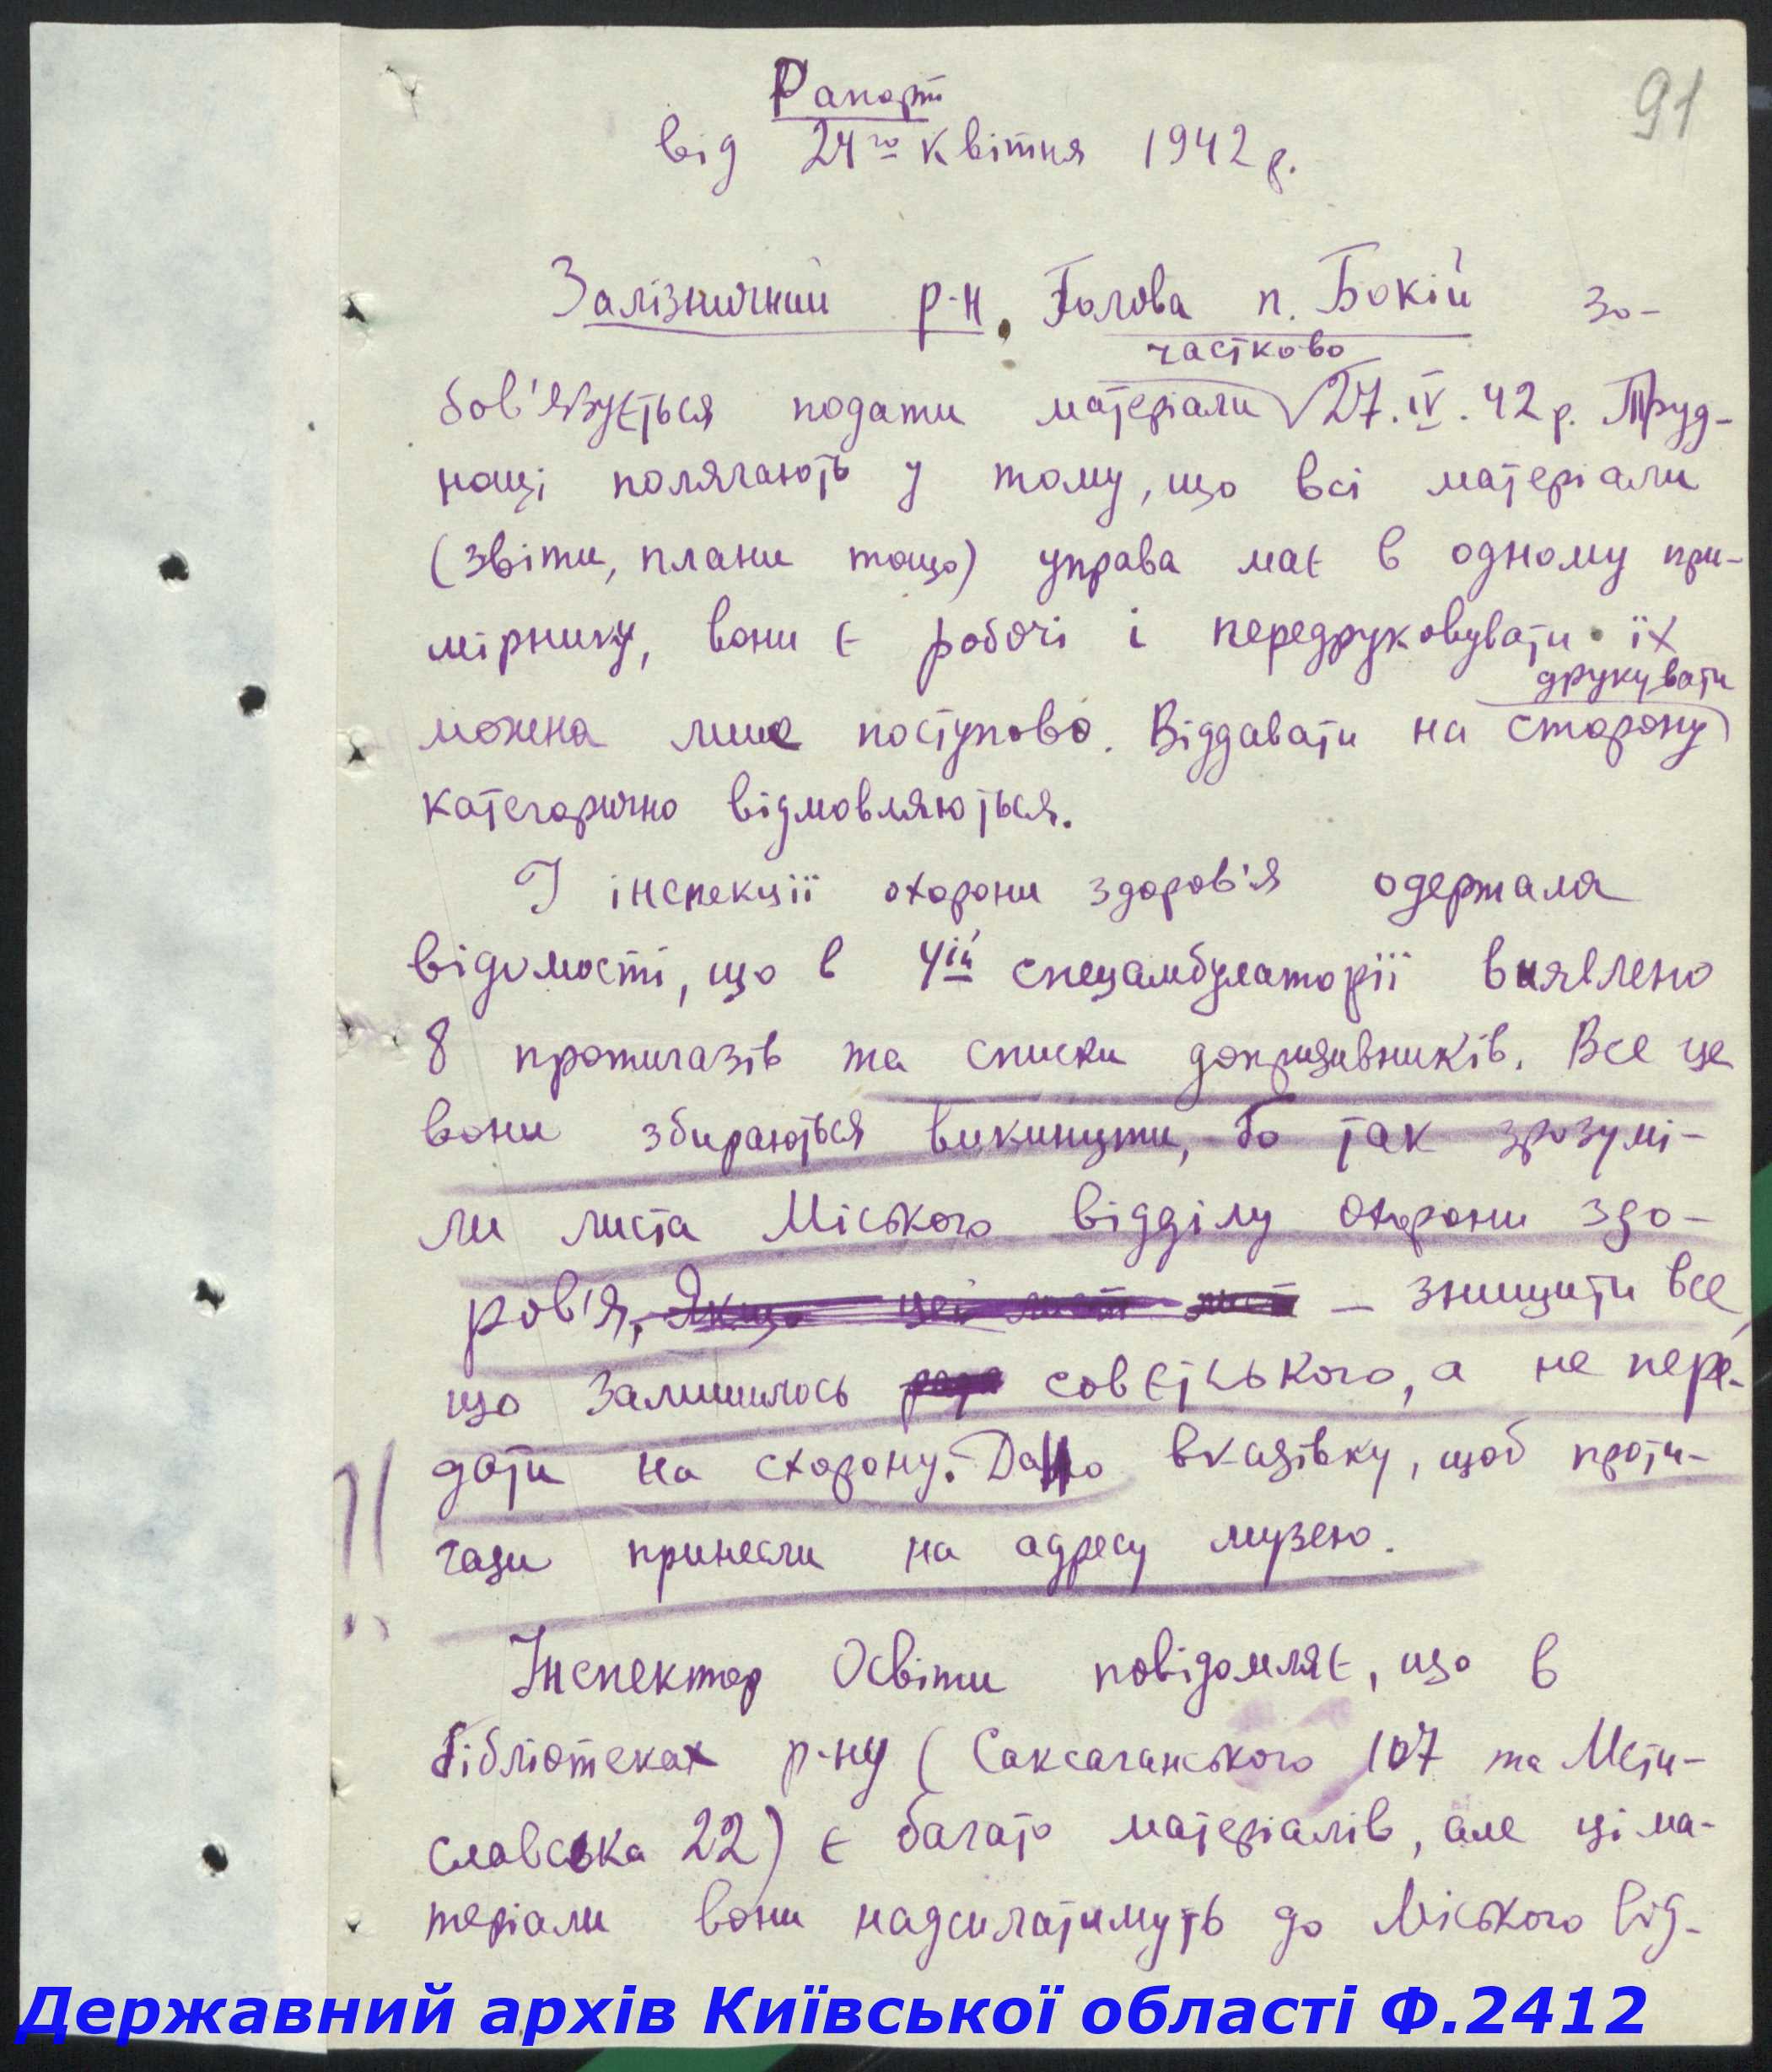 91
Рапорт
від 24го квітня 1942 р.
Залізничний р-н. Голова п. Бокій зо-
частково
бов'язується подати матеріали √ 27.IV.42 р. Труд-
нощі полягають у тому, що всі матеріали
(звіти, плани тощо) управа має в одному при-
мірнику, вони є робочі і передруковувати їх
друкувати
можна лише поступово. Віддавати на сторону
категорично відмовляються.
І інспекції охорони здоров'я одержала
відомості, що в 4ій спецамбулаторії виявлено
8 протигазів та списки допризивників. Все це
вони збираються викинути, бо так зрозумі-
ли листа Міського відділу Охорони здо-
ров'я, Якщо цей лист лист — знищити все,
що залишилось совєтського, а не пере-
дати на сторону. Дано вказівку, щоб проти-
гази принесли на адресу музею.
Інспектор Освіти повідомляє, що в
бібліотеках р-ну (Саксаганського 107 та Мсти-
славська 22) є багато матеріалів, але ці ма-
теріали вони надсилатимуть до Міського Від-
Державний архів Київської області Ф.2412